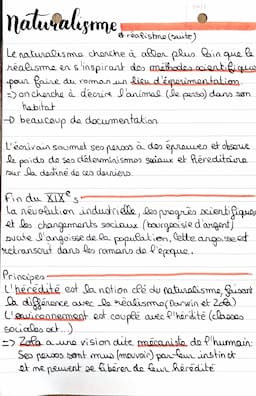 Naturalisme
& réalistme (suite)
Le naturalisme cherche à aller plus loin que le
réalisme en s'inspirant des méthodes scientifiques
pour faire du roman un lieu d'éxperimentation.
=> on cherche à décrire l'animal (le perso) dans son
habitat
-> beaucoup de documentation
L'écrivain soumet ses persos à des épreuves et observe
le poids de ses déterminismes sociaux et héréditaire
sur la destiné de ces derniers.
Fin du XIXe s
La révolution industrielle, les progrès scientifiques
et les changements sociaux (bourgeoisie d'argent)
suscite l'angoisse de la population, cette angoisse est
retranscrit dans les romans de l'époque.
Principes
L'hérédité est la notion clé du naturalisme, faisant
la différence avec le réalisme (Darwin et Zola)
L'environnement est couplé avec l'hérité (classes
sociales ect...)
=> Zola a une vision dite mécaniste de l'humain:
Ses persos sont mus (mouvoir) par leur instinct
et ne peuvent se libérer de leur hérédité